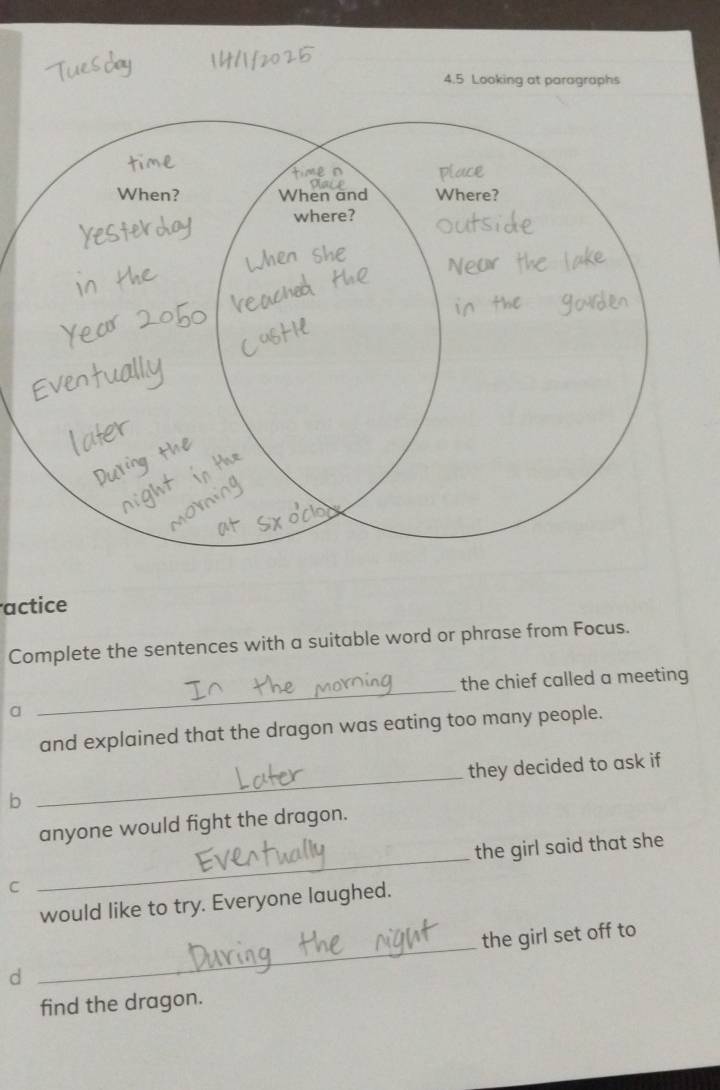 Tuesday 14/1/2025
4.5 Looking at paragraphs
time
When?
Yesterday
in the
Year 2050
Eventually
later
During the
night in the
morning
at sx o'clock
time n
place
When and
where?
When she
reached the
castle
place
Where?
outside
Near the lake
in the garden
ractice
Complete the sentences with a suitable word or phrase from Focus.
a In the morning the chief called a meeting
and explained that the dragon was eating too many people.
b Later they decided to ask if
anyone would fight the dragon.
c Eventually the girl said that she
would like to try. Everyone laughed.
d During the night the girl set off to
find the dragon.